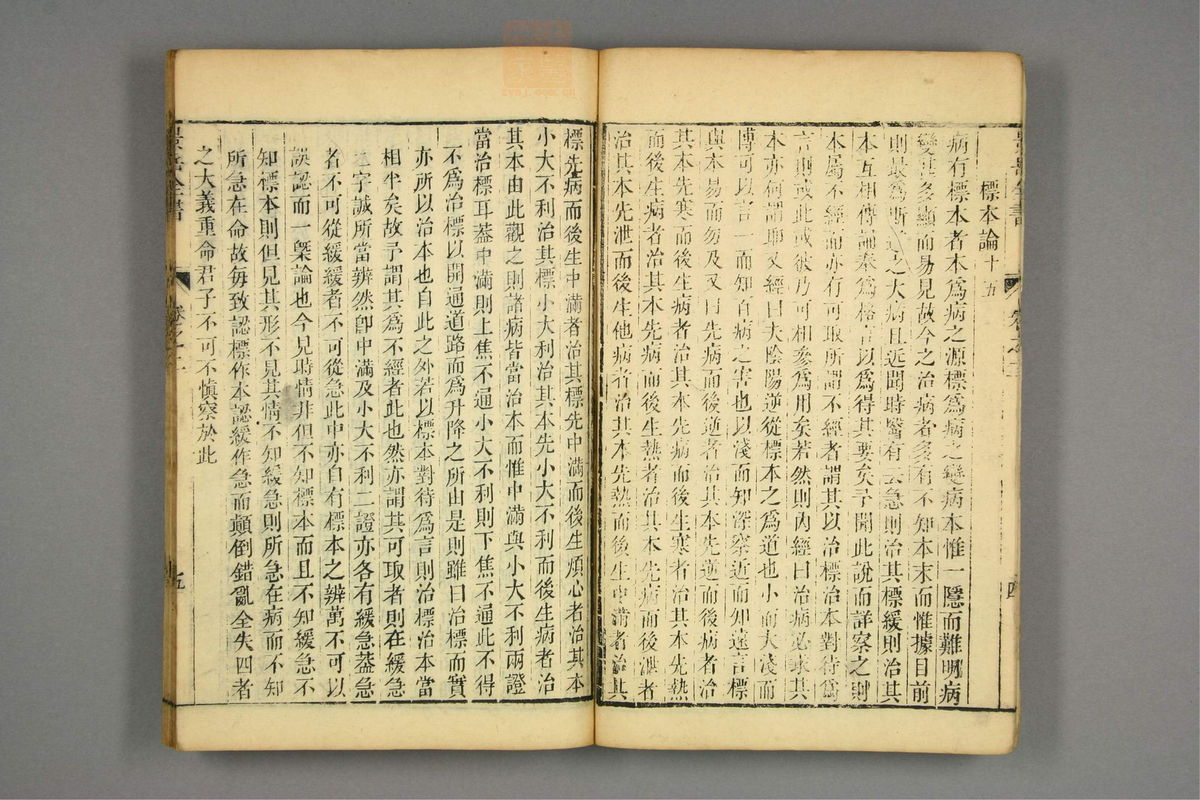 標本論十五
病有標本者本為病之源標為病之變病本惟一隱而難明病
變甚多顯而易見故今之治病者多有不知本末而惟據目前
則最為斯道之大病且近聞時醫有云急則治其標緩則治其
本互相傳誦奉為格言以為得其要矣予聞此說而詳察之則
本屬不經而亦有可取所謂不經者謂其以治標治本對待為
言則或此或彼乃可相參為用矣若然則內經曰治病必求其
本亦何謂耶又經曰夫陰陽逆從標本之為道也小而大淺而
博可以言一而知百病之害也以淺而知深察近而知遠言標
與本易而勿及又曰先病而後逆者治其本先逆而後病者治
其本先寒而後生病者治其本先病而後生寒者治其本先熱
而後生病者治其本先病而後生熱者治其本先病而後泄者
治其本先泄而後生他病者治其本先熱而後生中滿者治其
四
標先病而後生中滿者治其標先中滿而後生煩心者治其本
小大不利治其標小大利治其本先小大不利而後生病者治
其本由此觀之則諸病皆當治本而惟中滿與小大不利兩證
當治標耳葢中滿則上焦不通小大不利則下焦不通此不得
不為治標以開通道路而為升降之所由是則雖曰治標而實
亦所以治本也自此之外若以標本對待為言則治標治本當
相半矣故予謂其為不經者此也然亦謂其可取者則在緩急
二字誠所當辨然卽中滿及小大不利二證亦各有緩急葢急
者不可從緩緩者不可從急此中亦自有標本之辨萬不可以
誤認而一槩論也今見時情非但不知標本而且不知緩急不
知標本則但見其形不見其情不知緩急則所急在病而不知
所急在命故每致認標作本認緩作急而顛倒錯亂全失四者
之大義重命君子不可不慎察於此
景岳全書
五